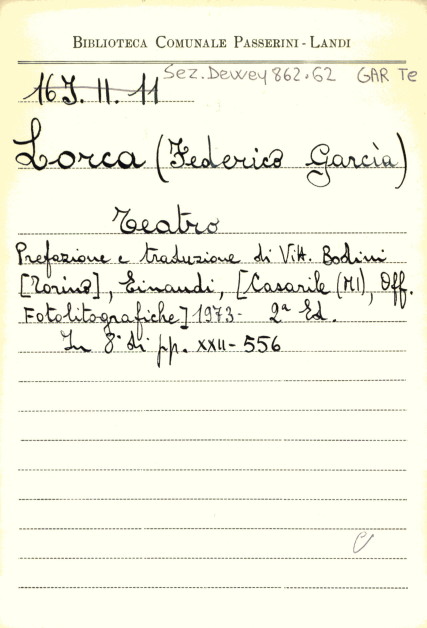 BIBLIOTECA COMUNALE PASSERINI - LANDI
Sez. Dewey 862.62 GAR Te
16 J. II. 11
Lorca (Federico Garcìa)
Teatro
Prefazione e traduzione di Vitt. Bodini
[Torino], Einaudi, [Casarile (MI), Off.
Fotolitografiche] 1973- 2ª Ed.
In 8° di pp. XXII- 556